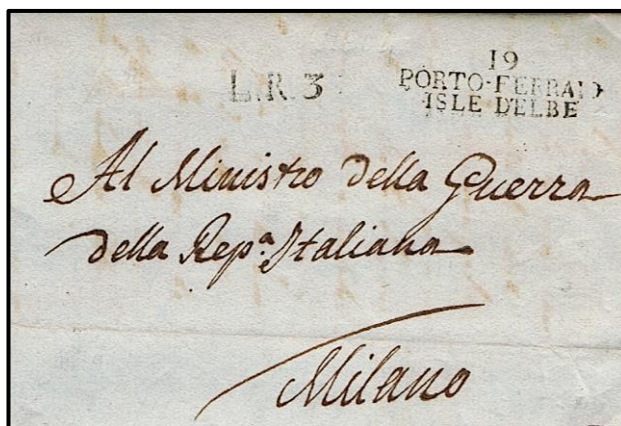 L.R.3
19
PORTO-FERRAIO
ISLE D'ELBE
Al Ministro della Guerra
della Rep.a Italiana
Milano